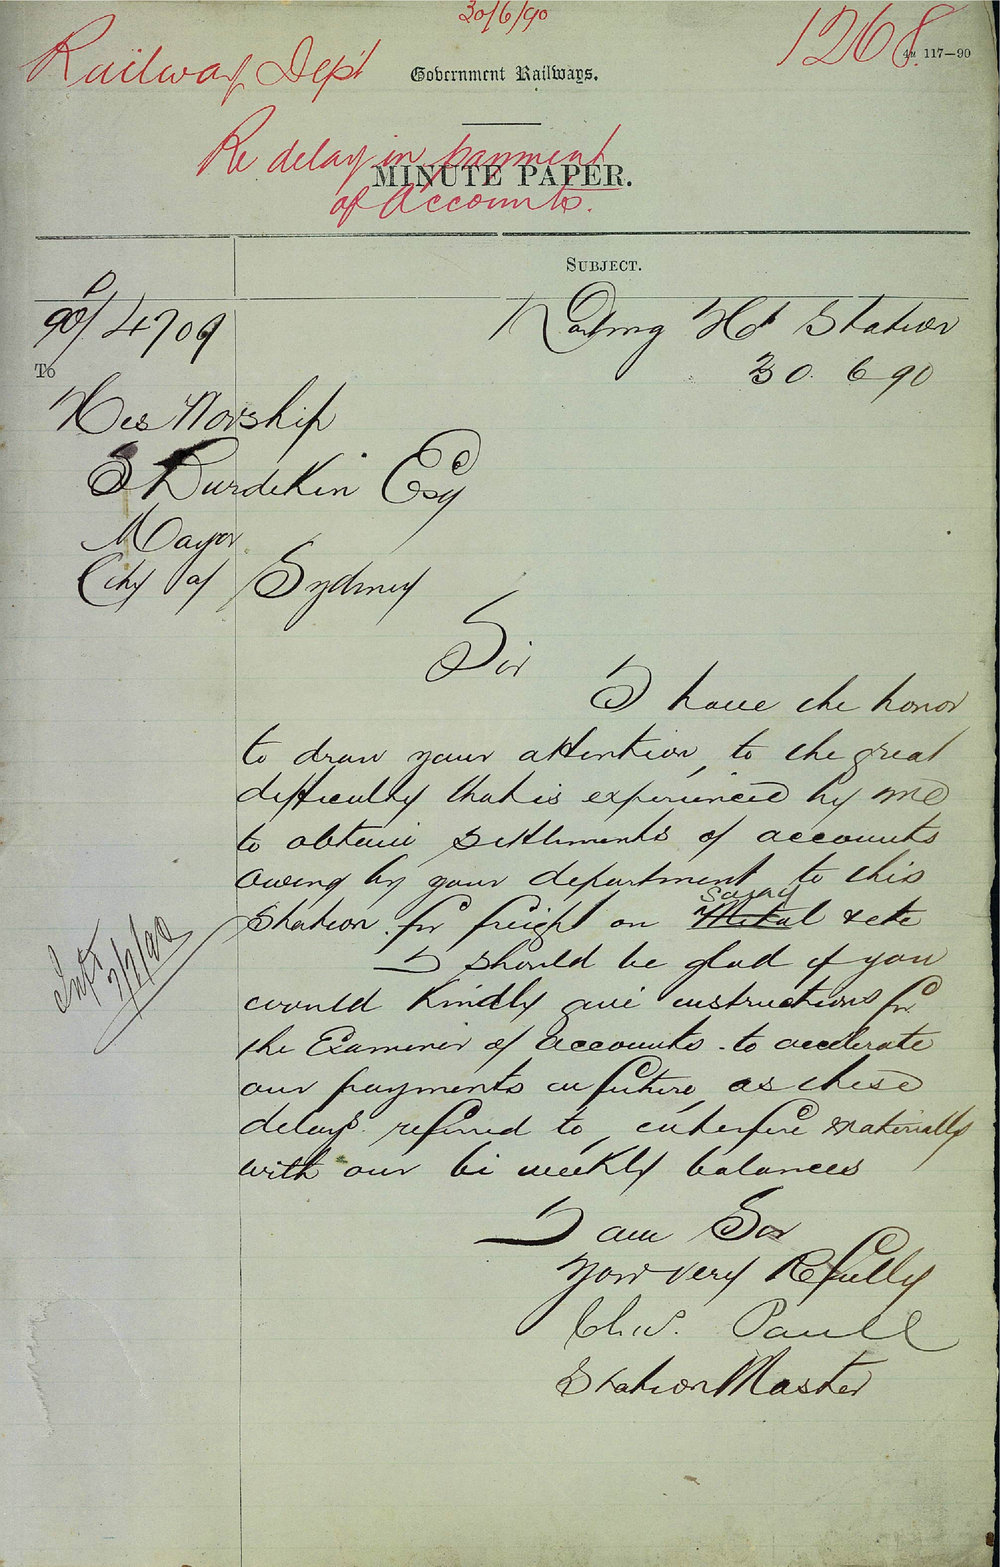 30/6/90
Railway Dept
1268
4u 117—90
Government Railways.
Re delay in payment
MINUTE PAPER.
of Accounts.
SUBJECT.
P
90/4709
Darling Hr Station
30. 6 90
To
His Worship
S Burdekin Esq
Mayor
City of Sydney
Sir
I have the honor
to draw your attention, to the great
difficulty that is experienced by me
to obtain settlements of accounts
owing by your department to this
Station. for freight on Metal &ete
I should be glad if you
would Kindly give instructions for
the Examiner of Accounts. to accelerate
our payments in future, as these
delays refered to, interfere materially
with our bi weekly balances
7/7/90
I am Sir
Your very Rfully
Chas. Paull
Station Master